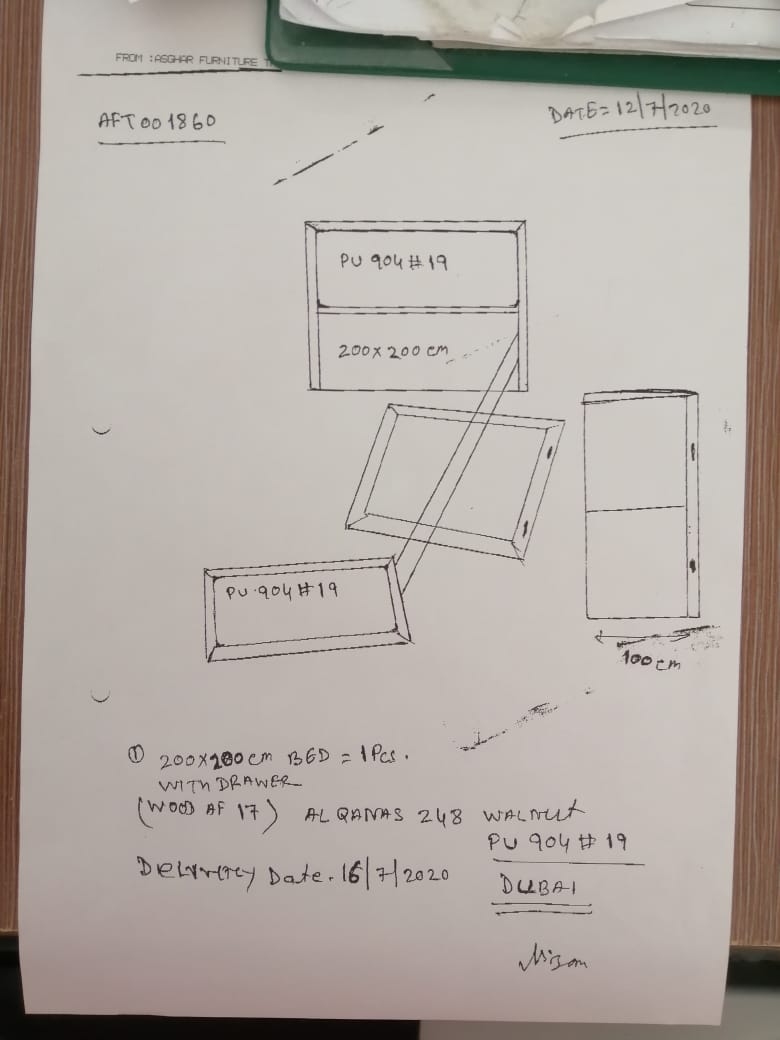 FROM :ASGHAR FURNITURE
AFT001860
DATE=12/7/2020
PU 904#19
200x200cm
PU.904#19
100cm
① 200x200cm BED = 1Pcs.
WITH DRAWER
(WOOD AF 17) AL QANAS 248 WALNUt
PU 904#19
DELIVREY Date. 16/7/2020
DUBAI